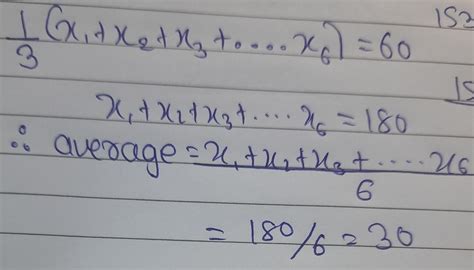 1/3 (x₁+x₂+x₃+....x₆) = 60
x₁+x₂+x₃+....x₆ = 180
∴ average = x₁+x₂+x₃+.....x₆ / 6
= 180/6 = 30